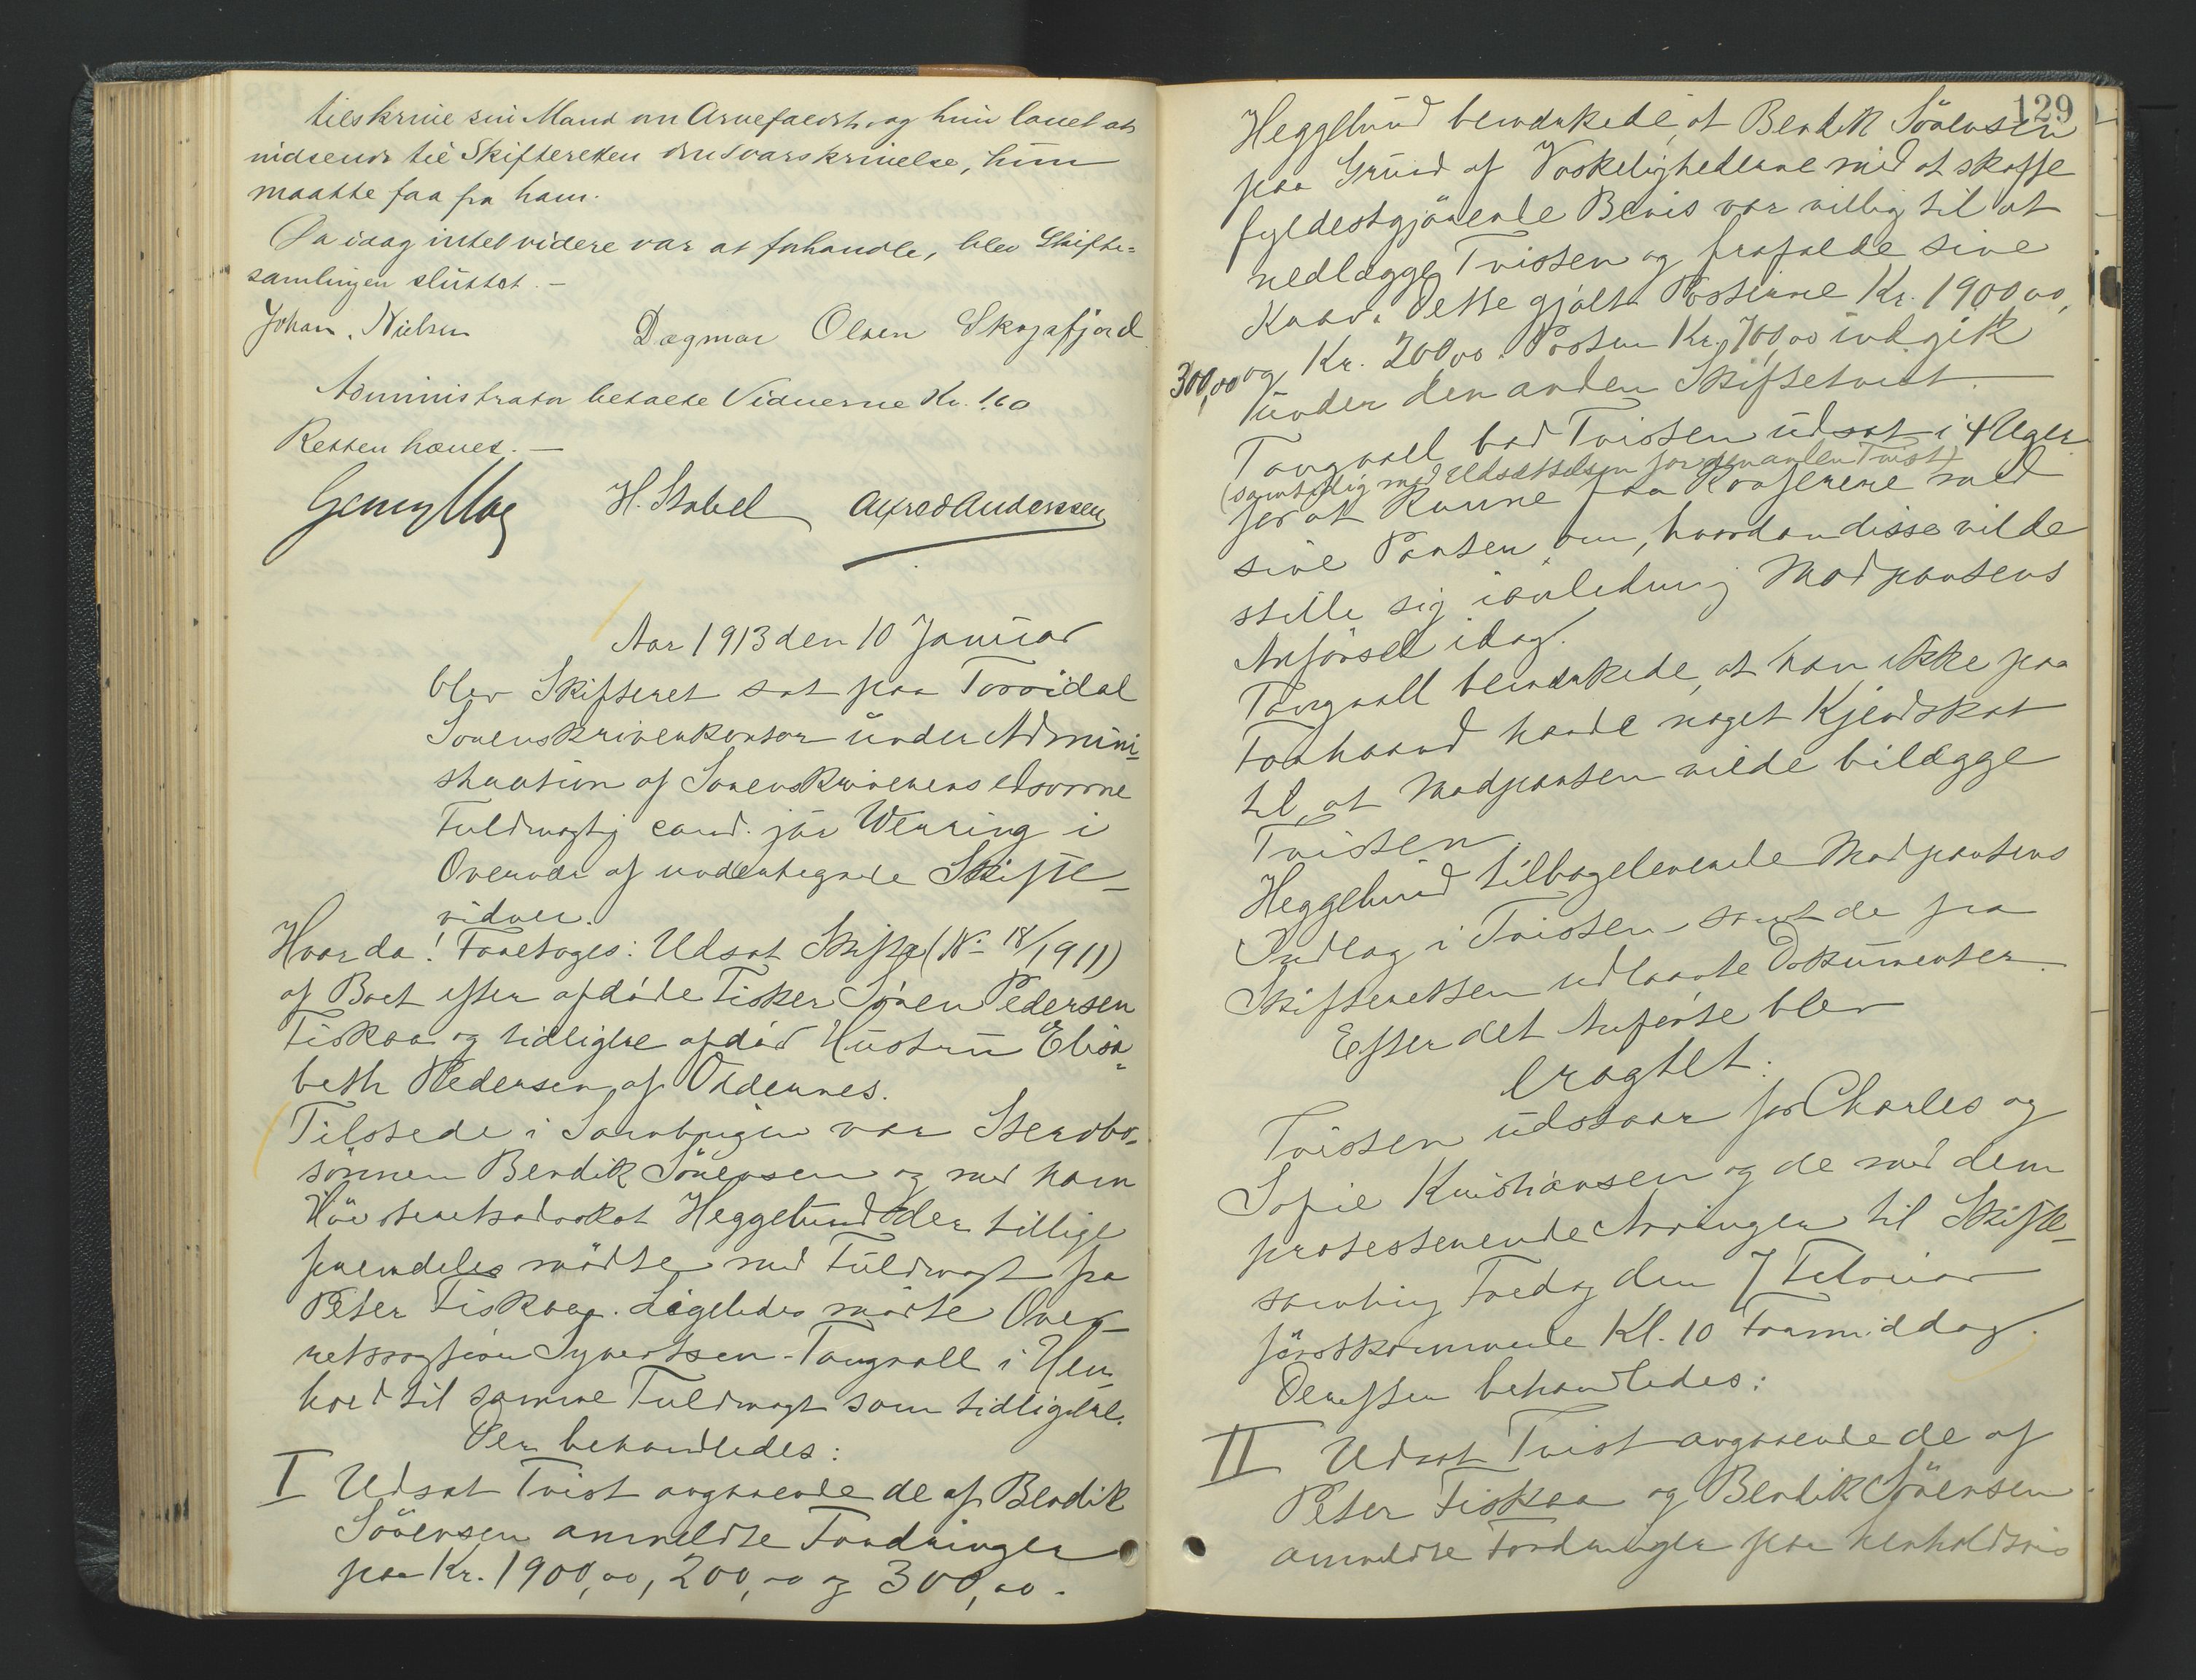 tilskrive sin Mand om Arvefaldet, og hun lovet at
indsende til Skifteretten den Svarskrivelse, hun
maatte faa fra ham.
Da idag intet videre var at forhandle, blev Skifte-
samlingen sluttet. —
Johan. Nielsen Dagmar Olsen Skogsfjord
Administrator betalte Vidnerne Kr. 1.60
Retten hævet. —
H. Stabel Alfred Anderssen
Aar 1913 den 10 Januar
blev Skifteret sat paa
Sorenskriverkontor under Admini-
stration af Sorenskriverens edsvorne
Fuldmægtig cand. jur Werring i
Overvær af undertegnede Skifte-
vidner.
Hvorda! Foretoges: Udsat Skifte (No 18/1911)
af Boet efter afdøde Fisker Sören Pedersen
Fiskaa og tidligere afdød Hustru Elisa-
beth Pedersen, af Oldernes.
Tilstede i Samlingen var Stervbo-
sönnen Bendik Sörensen og med ham
Höiesteretsadvokat Heggelund der tillige
fremdeles mödte med Fuldmagt fra
Peter Fiskaa. Ligeledes mödte Over-
retssagförer Syvertsen-Tangvall i Hen-
hold til samme Fuldmagt som tidligere.
Der behandledes:
I Udsat Tvist angaaende de af Bendik
Sörensen anmeldte Fordringer
paa Kr. 1900,00, 200,00 og 300,00.
129
Heggelund bemærkede, at Bendik Sörensen
paa Grund af Vanskelighederne med at skaffe
fyldestgjörende Bevis var villig til at
nedlægge Tvisten og frafalde sine
Krav. Dette gjaldt Posterne Kr. 1900 00,
300,00 og Kr. 200,00. Posten Kr. 700,00 indgik
under den anden Skiftetvist.
Tangvall bad Tvisten udsat i 4 Uger
(samtidig med Udsættelsen for den anden Tvist)
for at kunne faa konferere med
sine Parter om, hvordan disse vilde
stille sig i anledning Modpartens
Anförsel idag.
Tangvall bemærkede, at han ikke paa
Forhaand havde noget Kjendskab
til, at Modparten vilde bilægge
Tvisten.
Heggelund tilbageleverede Modpartens
Indlæg i Tvisten samt de fra
Skifteretten udlaante Dokumenter.
Efter det Anförte blev
eragtet:
Tvisten udstaar for Charles og
Sofie Kristiansen og de med dem
protesterende Arvinger til Skifte-
samling Fredag den 7 Februar
förstkommende Kl. 10 Formiddag.
Derefter behandledes:
II Udsat Tvist angaaende de af
Peter Fiskaa og Bendik Sörensen
anmeldte Fordringer paa henholdsvis